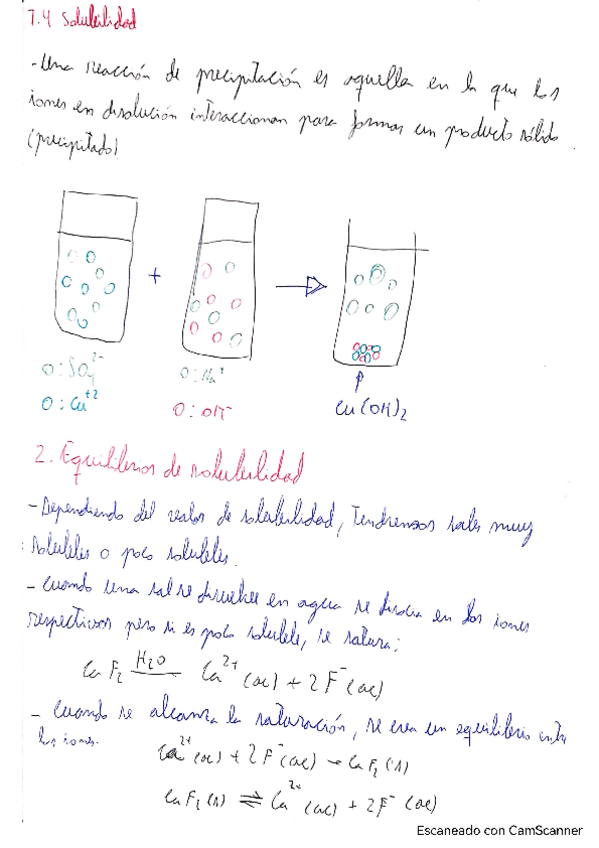 7.4 Solubilidad
- Una reacción de precipitación es aquella en la que los
iones en disolución interaccionan para formar un producto sólido
(precipitado)
+
O: SO4 2-
O: Cu+2
O: Na+
O: OH-
Cu(OH)2
2. Equilibrios de solubilidad
- Dependiendo del valor de solubilidad, Tendremos sales muy
solubles o poco solubles.
- Cuando una sal se disuelve en agua se disocia en los iones
respectivos pero si es poco soluble, se satura:
CaF2 H2O Ca2+ (ac) + 2F- (ac)
- Cuando se alcanza la saturación, se crea un equilibrio entre
los iones.
Ca2+ (ac) + 2F- (ac) → CaF2 (s)
CaF2 (s) ⇌ Ca2+ (ac) + 2F- (ac)
Escaneado con CamScanner